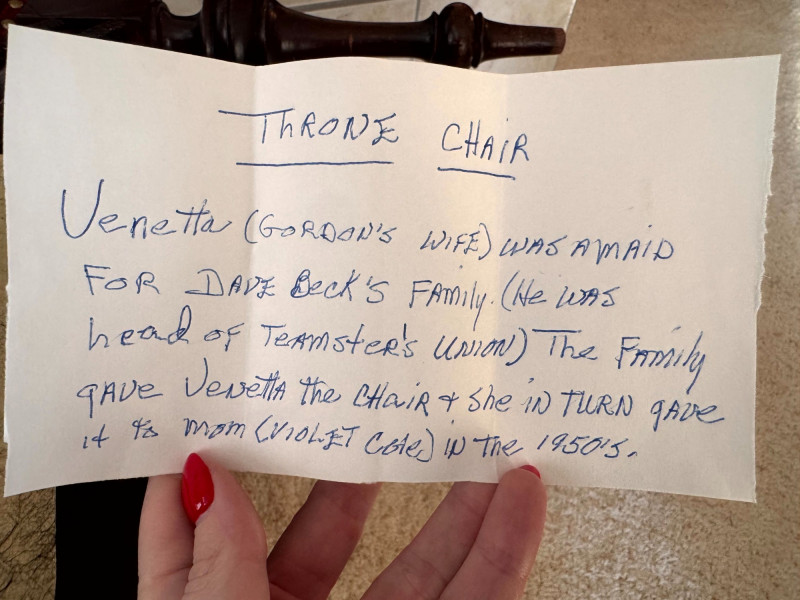 THRONE CHAIR
Venetta (GORDON'S WIFE) WAS A MAID
FOR DAVE Beck's FAMily. (He WAS
head of TEAMster's UNION) The FAMily
gAVE VENETTA the CHAIR & She iN TURN gAVE
it to mom (VIOLET Cole) IN The 1950's.